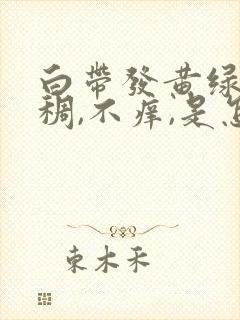 白带發黄绿
稠,不痒,是怎
東木禾